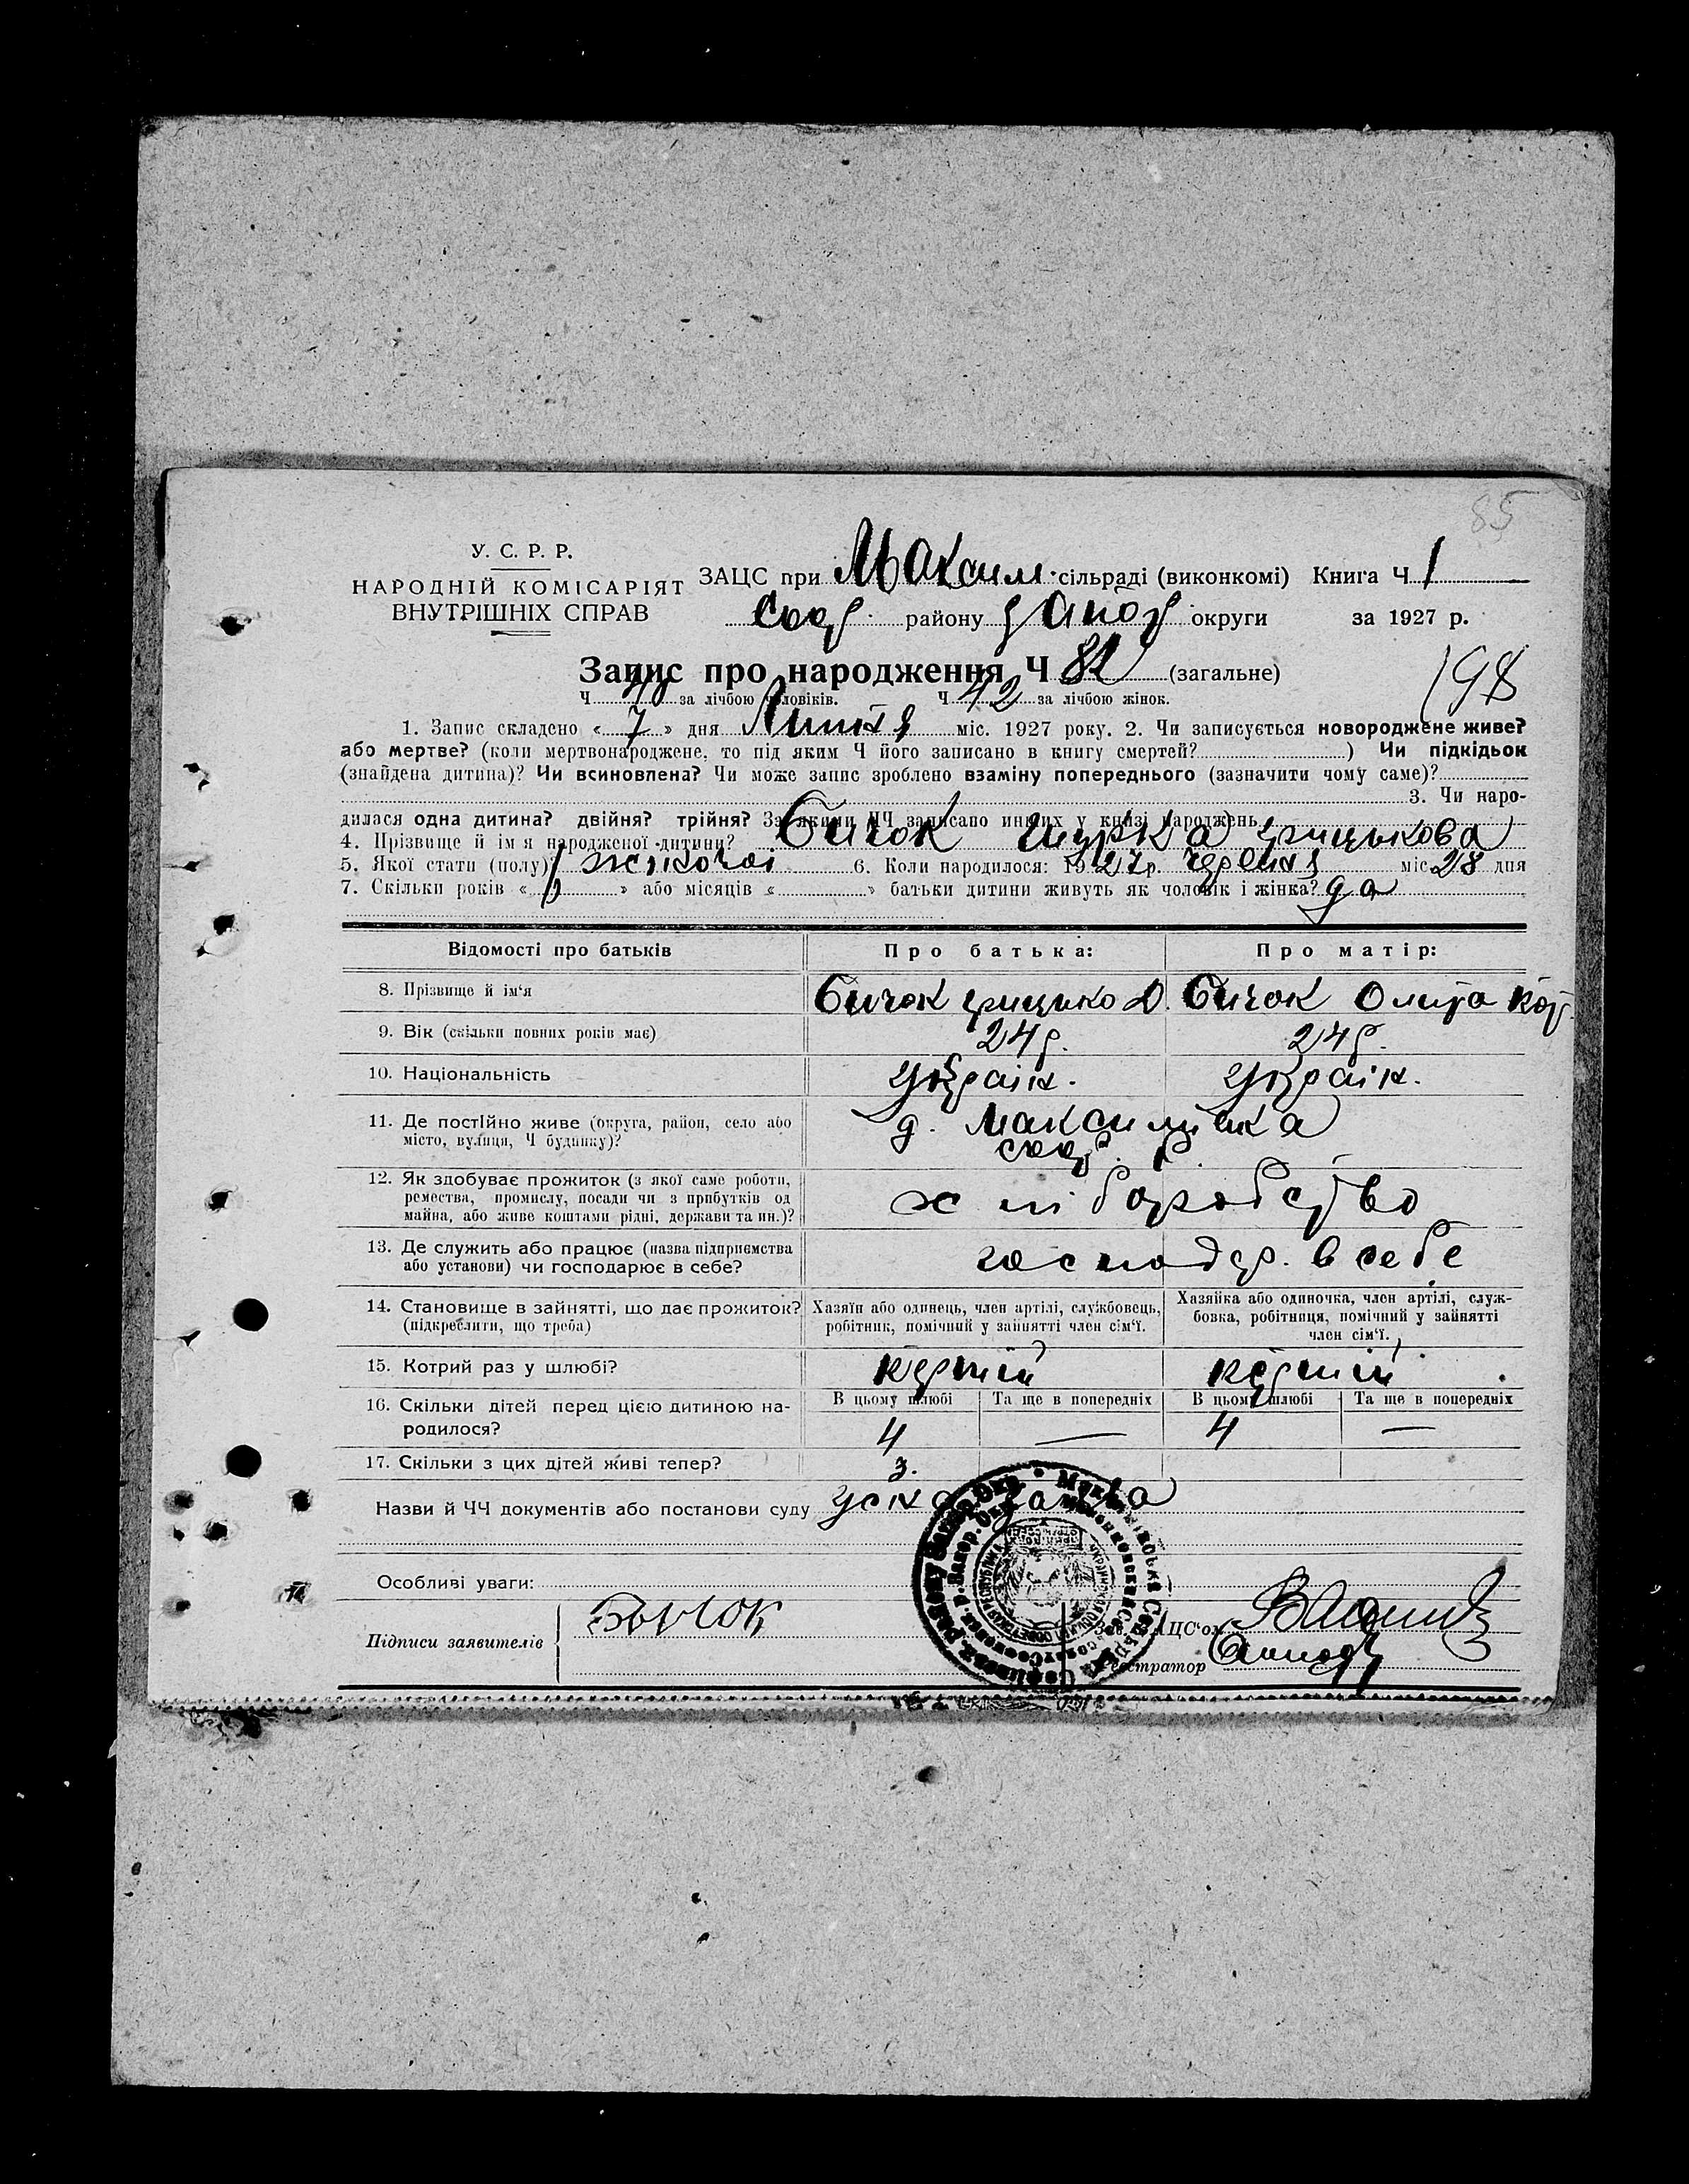 85
У. С. Р. Р.
НАРОДНІЙ КОМІСАРІЯТ
ВНУТРІШНІХ СПРАВ
ЗАЦС при Максим. сільраді (виконкомі) Книга Ч 1
району Запор округи за 1927 р.
Запис про народження Ч 82 (загальне)
198
Ч 40 за лічбою чоловіків. Ч 42 за лічбою жінок.
1. Запис складено « 7 » дня Липня міс. 1927 року. 2. Чи записується новороджене живе?
або мертве? (коли мертвонароджене, то під яким Ч його записано в книгу смертей? ) Чи підкідьок
(знайдена дитина)? Чи всиновлена? Чи може запис зроблено взаміну попереднього (зазначити чому саме)?
3. Чи наро-
дилася одна дитина? двійня? трійня? За якими ЧЧ записано инших у книзі народжень
4. Прізвище й ім'я народженої дитини? Бичок Шурка Грицькова
5. Якої стати (полу) жіночоі 6. Коли народилося: 1927 р. Червня міс 28 дня
7. Скільки років « » або місяців « » батьки дитини живуть як чоловік і жінка? да
Відомості про батьків Про батька: Про матір:
8. Прізвище й ім'я Бичок Грицько Д. Бичок
9. Вік (скільки повних років має) 24 р. 24 р.
10. Національність Україн. Україн.
11. Де постійно живе (округа, район, село або
місто, вулиця, Ч будинку)?
д. Максимівка
12. Як здобуває прожиток (з якої саме роботи,
ремества, промислу, посади чи з прибутків од
майна, або живе коштами рідні, держави та ин.)?
хліборобство
13. Де служить або працює (назва підприємства
або установи) чи господарює в себе?
господар. в себе
14. Становище в зайнятті, що дає прожиток?
(підкреслити, що треба)
Хазяїн або одинець, член артілі, службовець,
робітник, помічний у зайнятті член сім'ї.
Хазяйка або одиночка, член артілі, служ-
бовка, робітниця, помічний у зайнятті
член сім'ї.
15. Котрий раз у шлюбі? перший перший
16. Скільки дітей перед цією дитиною на-
родилося?
В цьому шлюбі Та ще в попередніх В цьому шлюбі Та ще в попередніх
4 — 4 —
17. Скільки з цих дітей живі тепер? 3.
Назви й ЧЧ документів або постанови суду усна заява
Особливі уваги:
Підписи заявителів Бычок
Зав. ЗАЦС'ом
Реєстратор